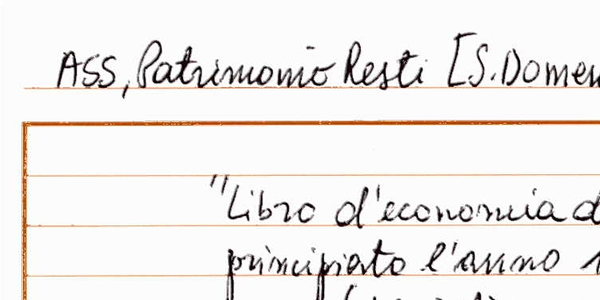 ASS, Patrimonio Resti [S. Domen
"Libro d'economia d
principiato l'anno 1